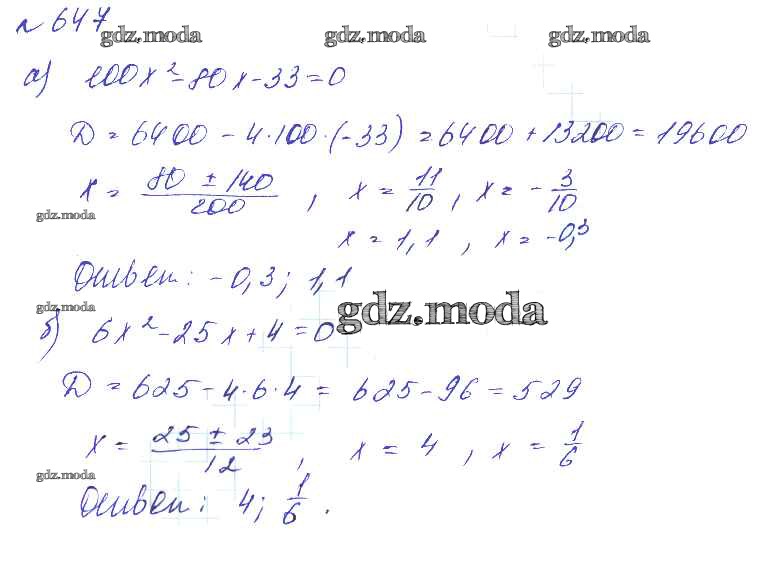 № 647
gdz.moda gdz.moda gdz.moda
а) 100x² - 80x - 33 = 0
D = 6400 - 4·100·(-33) = 6400 + 13200 = 19600
x = (80 ± 140)/200, x = 11/10, x = -3/10
gdz.moda
x = 1,1, x = -0,3
Ответ: -0,3; 1,1
gdz.moda gdz.moda
б) 6x² - 25x + 4 = 0
D = 625 - 4·6·4 = 625 - 96 = 529
x = (25 ± 23)/12, x = 4, x = 1/6
gdz.moda
Ответ: 4; 1/6.